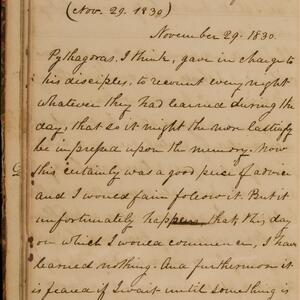 (Nov. 29. 1830)
November 29. 1830.
Pythagoras, I think, gave in charge to
his disciples, to recount every night
whatever they had learned during the
day, that so it might the more lastingly
be impressed upon the memory. Now
this certainly was a good piece of advice
and I would fain follow it. But it
unfortunately happens that this day
on which I would commence, I have
learned nothing. And furthermore it
is feared if I wait until something is